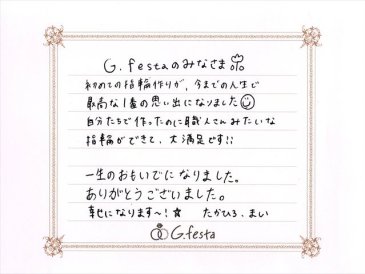 G.festaのみなさま
初めての指輪作りが、今までの人生で
最高な1番の思い出になりました
自分たちで作ったのに職人さんみたいな
指輪ができて、大満足です!!
一生のおもいでになりました。
ありがとうございました。
幸せになります〜!☆ たかひろ、まい
G.festa